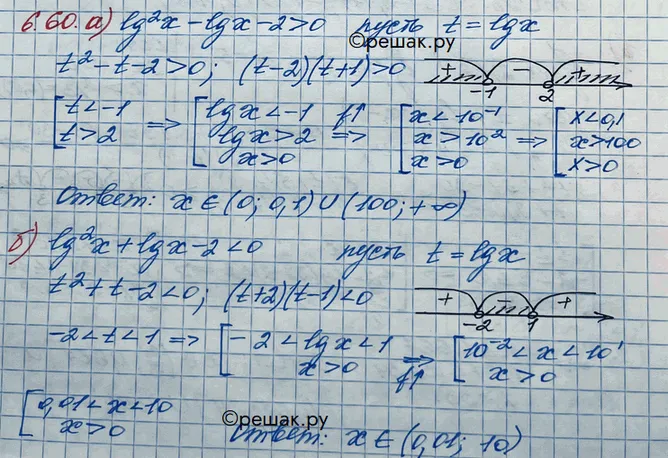 6.60. а) lg²x - lgx - 2 > 0 пусть t = lgx
©решак.ру
t² - t - 2 > 0; (t-2)(t+1) > 0 + - + -1 2
[ t < -1 => [ lgx < -1 f↑ [ x < 10⁻¹ [ x < 0,1
t > 2 lgx > 2 => x > 10² => x > 100
x > 0 x > 0 x > 0
Ответ: x ∈ (0; 0,1) ∪ (100; +∞)
б) lg²x + lgx - 2 < 0 пусть t = lgx
t² + t - 2 < 0; (t+2)(t-1) < 0 + - + -2 1
-2 < t < 1 => [ -2 < lgx < 1 => [ 10⁻² < x < 10¹
x > 0 f↑ x > 0
[ 0,01 < x < 10
x > 0 ©решак.ру
Ответ: x ∈ (0,01; 10)